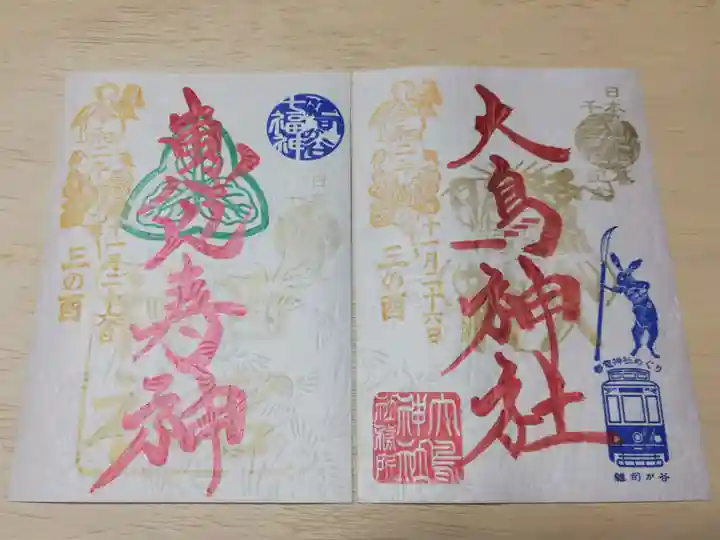 恵比寿神
七福神
十一月二十六日
三の酉
大鳥神社
十一月二十六日
三の酉
大鳥
神社
社務所
都電神社めぐり
雑司が谷